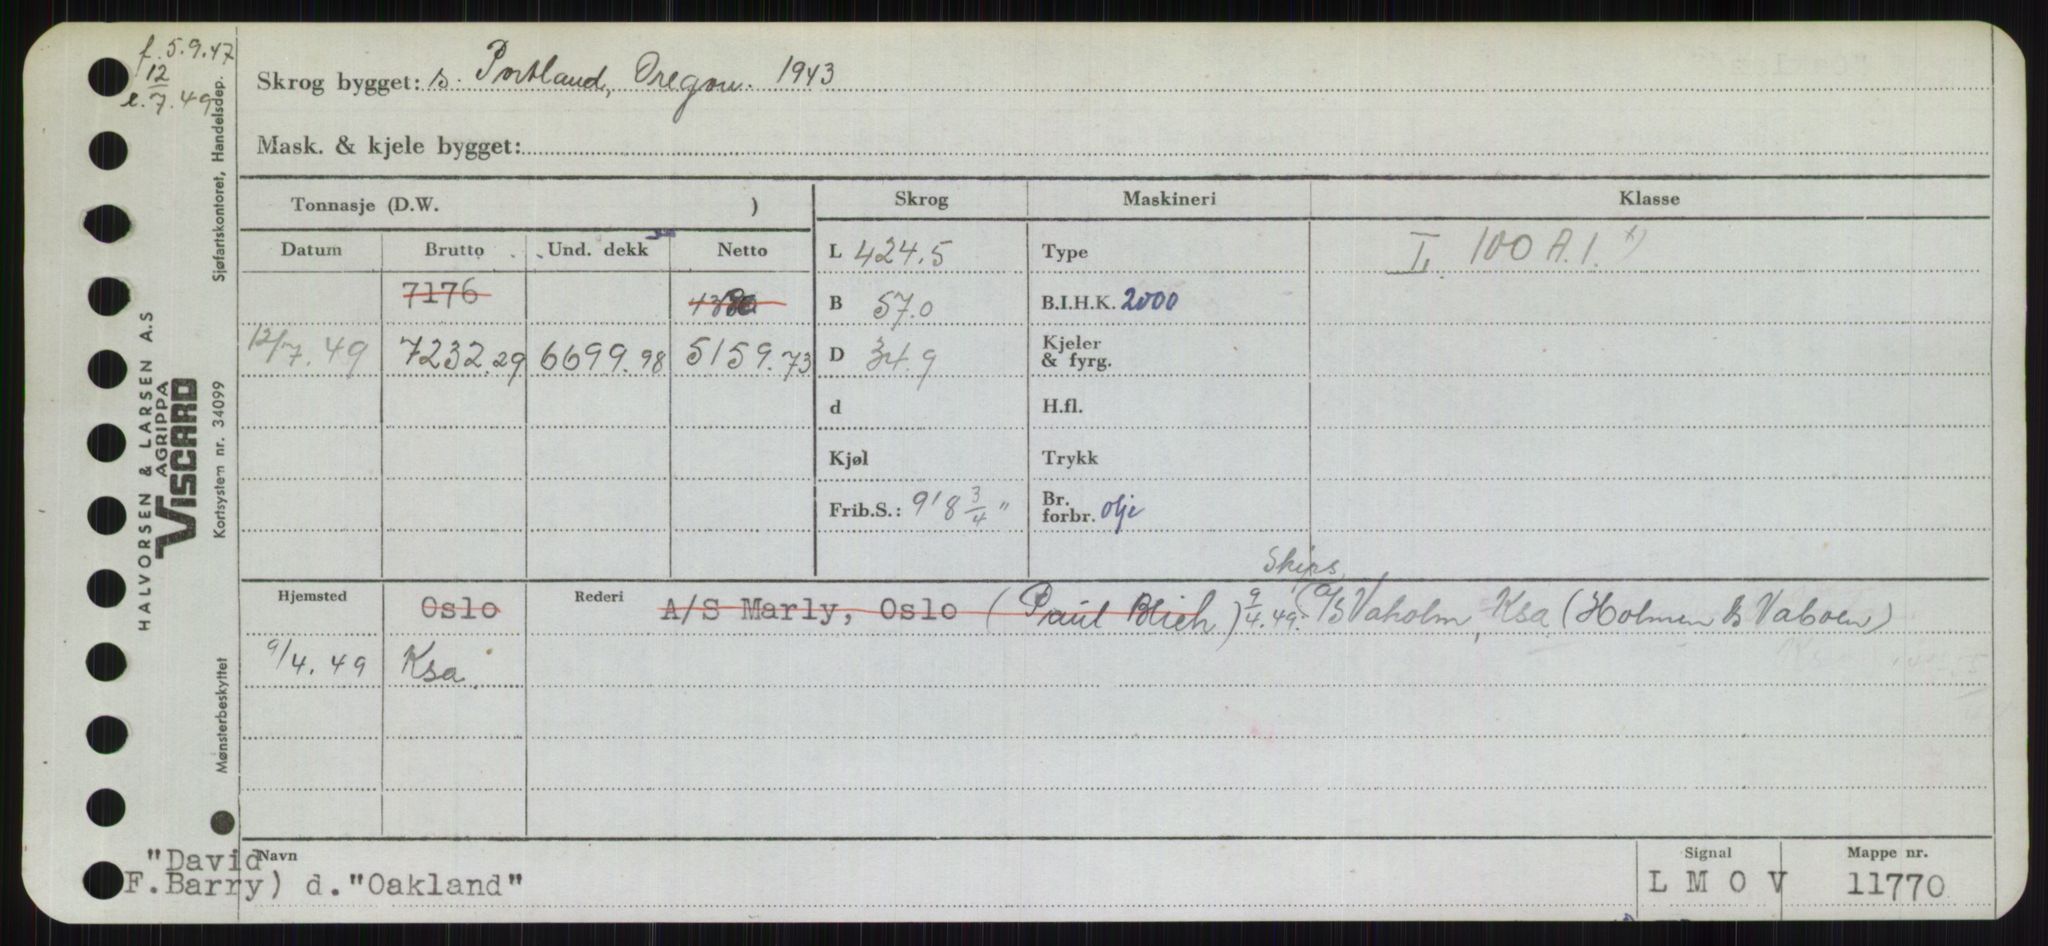 f. 5.9.47
12
e. 7. 49
Skrog bygget: s. Portland, Oregon. 1943
Mask. & kjele bygget:
Tonnasje (D.W. )
Skrog
Maskineri
Klasse
Datum Brutto Und. dekk Netto
L 424.5
Type
I. 100 A.1. x)
7176
B 57.0
B.I.H.K. 2000
12/7. 49 7232.29 6699.98 5159.73
D 34.9
Kjeler
& fyrg.
d
H.fl.
Kjøl
Trykk
Frib.S.: 9'8 3/4"
Br.
forbr. olje
Skips
Hjemsted Oslo Rederi A/S Marly, Oslo (Paul Blich) 9/4.49. (A/S Vaholm, Ksa (Holmen & Vaboen)
9/4.49 Ksa.
Navn
"David
F.Barry) d."Oakland"
Signal
L M O V
Mappe nr.
11770
Sjøfartskontoret, Handelsdep.
HALVORSEN & LARSEN A.S
AGRIPPA
VISCARD
Kortsystem nr. 34099
Mønsterbeskyttet